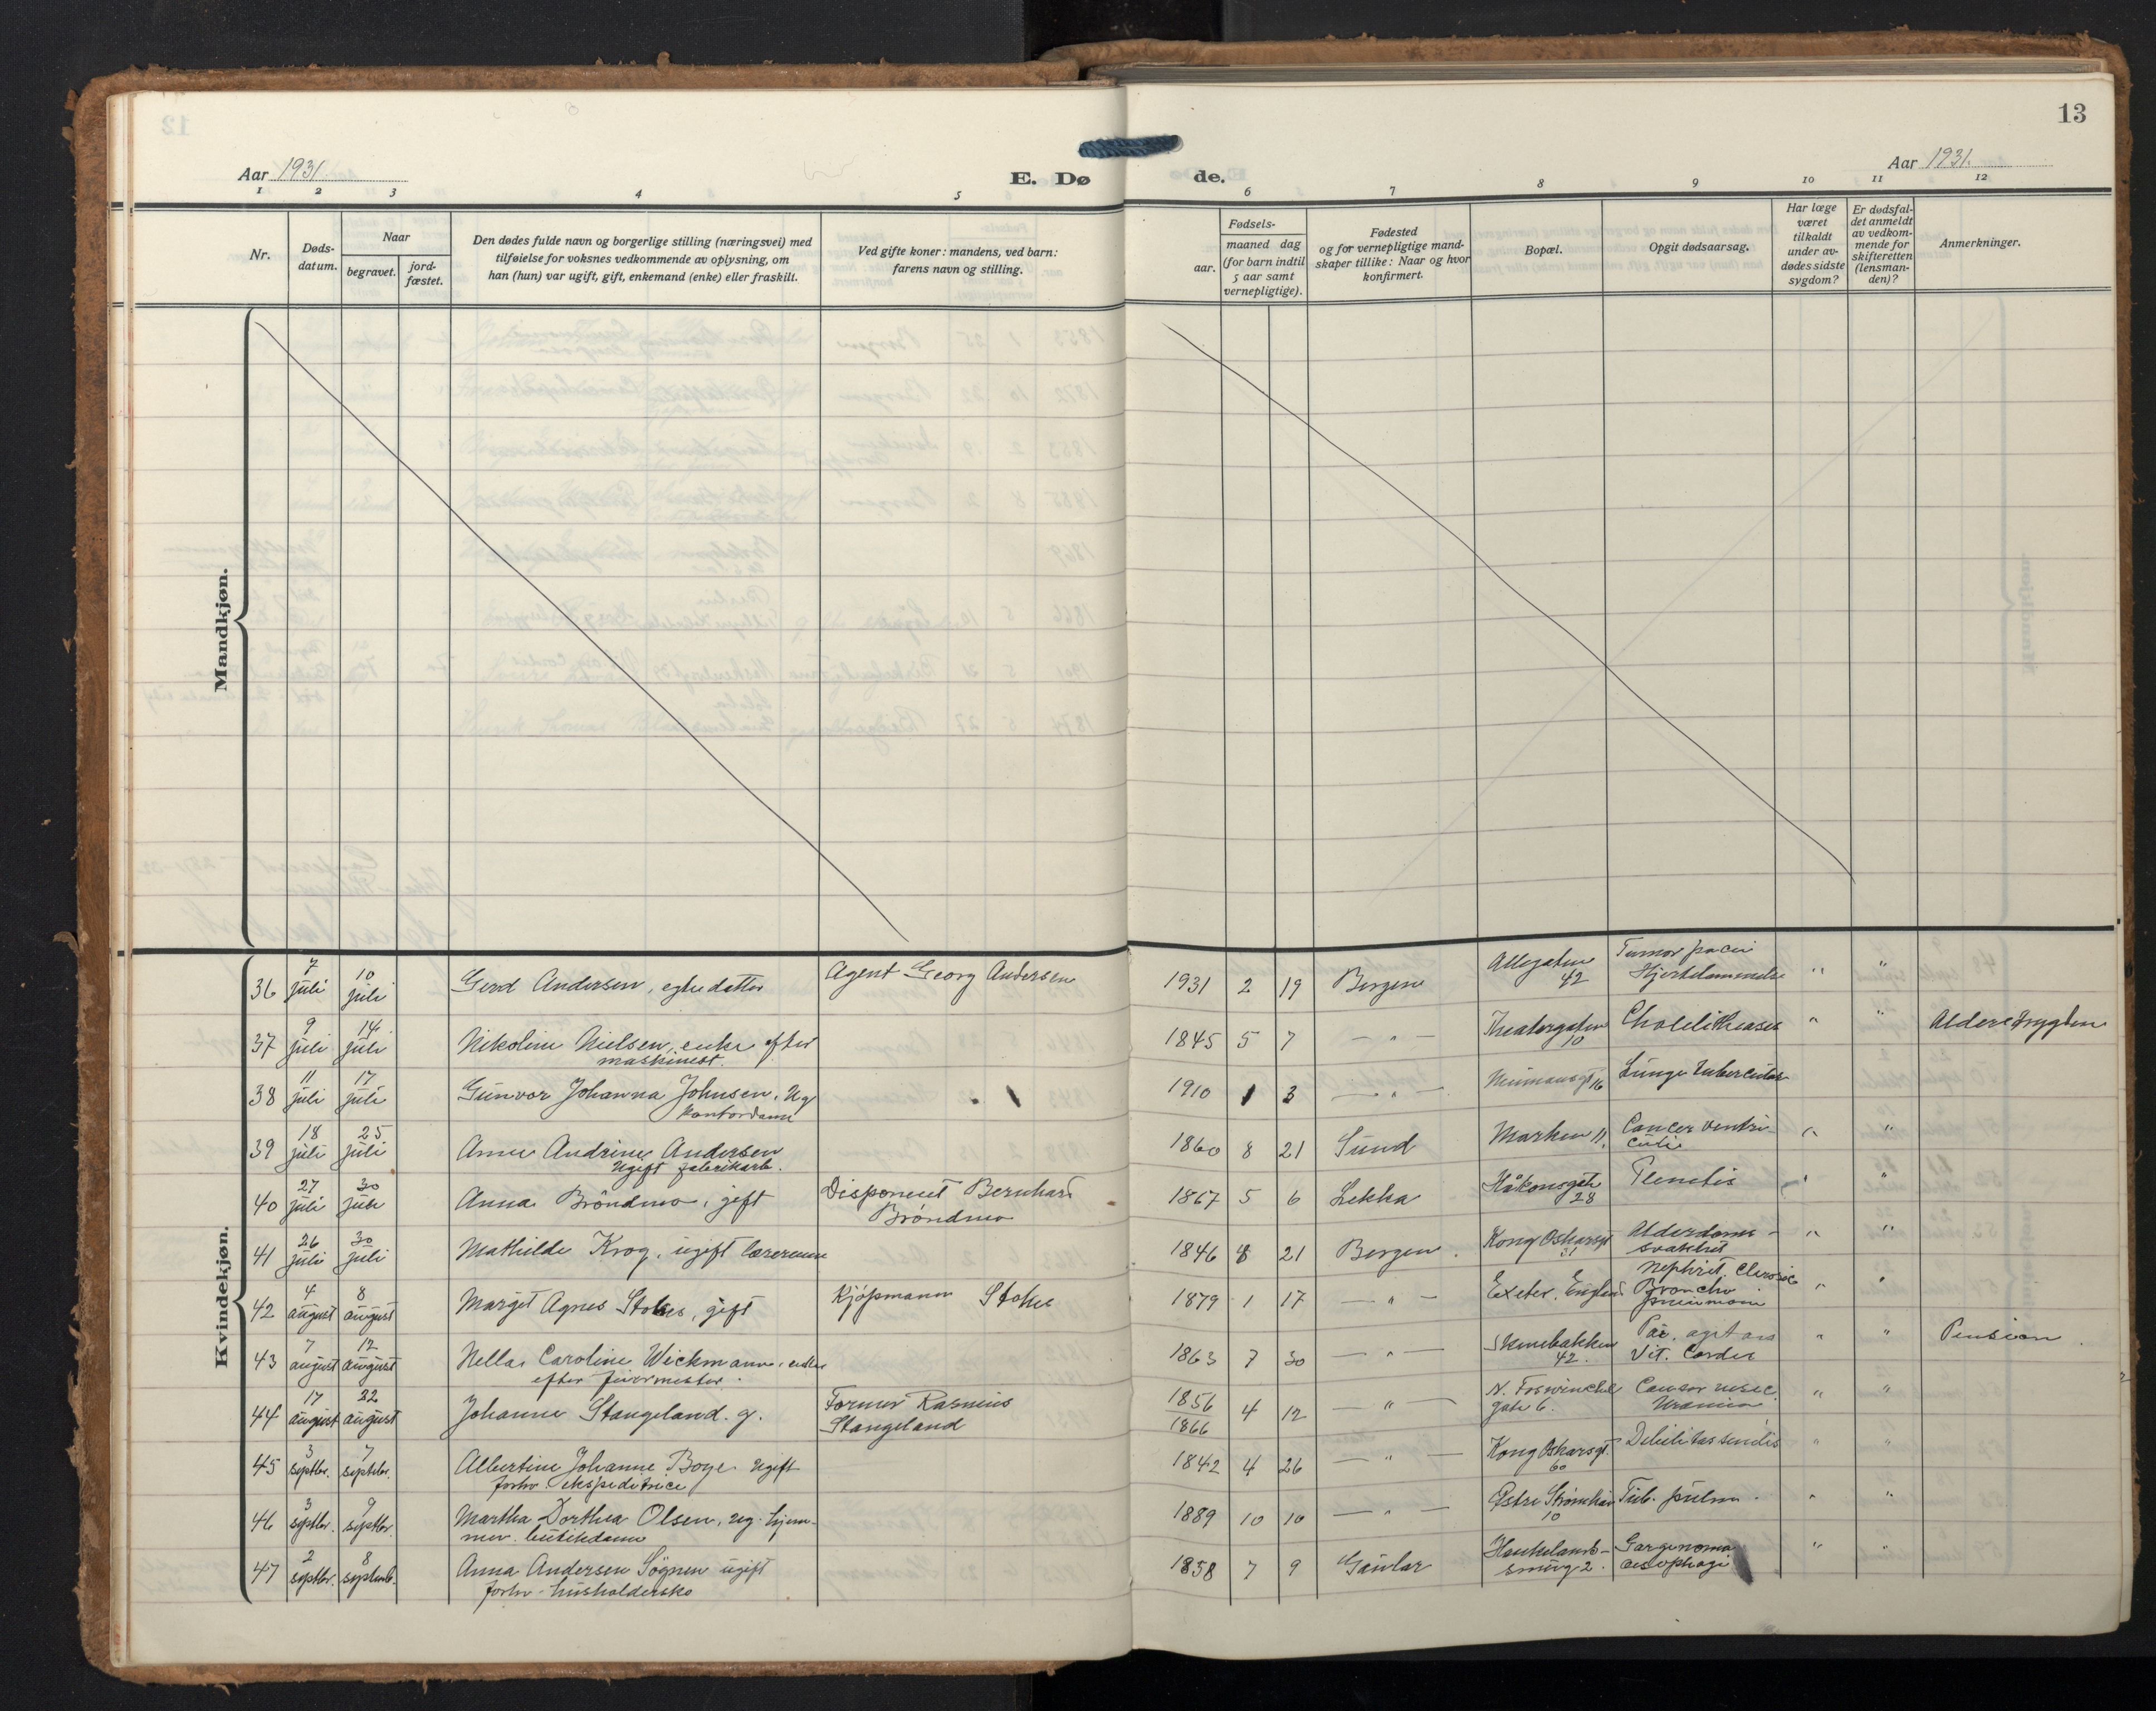 13
Aar 1931.
E. Dø
de.
Aar 1931.
1 2 3 4 5 6 7 8 9 10 11 12
Nr.
Døds-
datum.
Naar
begravet.
jord-
fæstet.
Den dødes fulde navn og borgerlige stilling (næringsvei) med
tilføielse for voksnes vedkommende av oplysning, om
han (hun) var ugift, gift, enkemand (enke) eller fraskilt.
Ved gifte koner: mandens, ved barn:
farens navn og stilling.
Fødsels-
aar.
maaned dag
(for barn indtil
5 aar samt
vernepligtige).
Fødested
og for vernepligtige mand-
skaper tillike: Naar og hvor
konfirmert.
Bopæl.
Opgit dødsaarsag.
Har læge
været
tilkaldt
under av-
dødes sidste
sygdom?
Er dødsfal-
det anmeldt
av vedkom-
mende for
skifteretten
(lensman-
den)?
Anmerkninger.
Mandkjøn.
Kvindekjøn.
36 7 juli 10 juli Gerd Andersen, egte datter Agent Georg Andersen 1931 2 19 Bergen Allegaten 42 Tumor Hjertelammelse " "
37 9 juli 14 juli Nikoline Nielsen, enke efter
maskinist. 1845 5 7 — " — Theatergaten 10 " " Alderstrygden
38 11 juli 17 juli Gunvor Johanna Johnsen, ug.
kontordame 1910 1 3 — " — Neumansgt 16 Lunge tuberculos
39 18 juli 25 juli Anne Andrine Andersen
ugift fabrikarb. 1860 8 21 Sund Marken 11. Cancer ventri-
culi " "
40 27 juli 30 juli Anna Bröndmo, gift Disponent Bernhard
Bröndmo 1867 5 6 Lekka Håkonsgate 28 " "
41 26 juli 30 juli Mathilde Krog, ugift lærerinne 1846 8 21 Bergen. Kong Oskarsgt 31 Alderdoms-
svakhet " "
42 4 august 8 august Marget Agnes Stokes, gift Kjöpmann Stokes 1879 1 17 — " — Exeter, England Nephrit.
Broncho
pneumoni " "
43 7 august 12 august Nella Caroline Wickmann, enke
efter fyrmester. 1863 7 30 — " — Skivebakken 42.
Vit. Cordis " " Pension
44 17 august 22 august Johanne Stangeland. g. Former Rasmus
Stangeland 1856
1866 4 12 — " — N. Foswinckels
gate 6. Uremia " "
45 3 septbr. 7 septbr. Albertine Johanne Boye ugift
forhv. ekspeditrice 1842 4 26 — " — Kong Oskarsgt. 60 Debilitas senilis " "
46 3 septbr. 9 septbr. Martha Dorthea Olsen, ug. hjem-
mev. butikdame 1889 10 10 — " — Østre Strømkai 10 Tub. pulm. " "
47 2 septbr. 8 septemb. Anna Andersen Sögnen ugift
forhv. husholderske 1858 7 9 Gaular Haukelands-
smug 2. Carcinoma
oesophagi " "